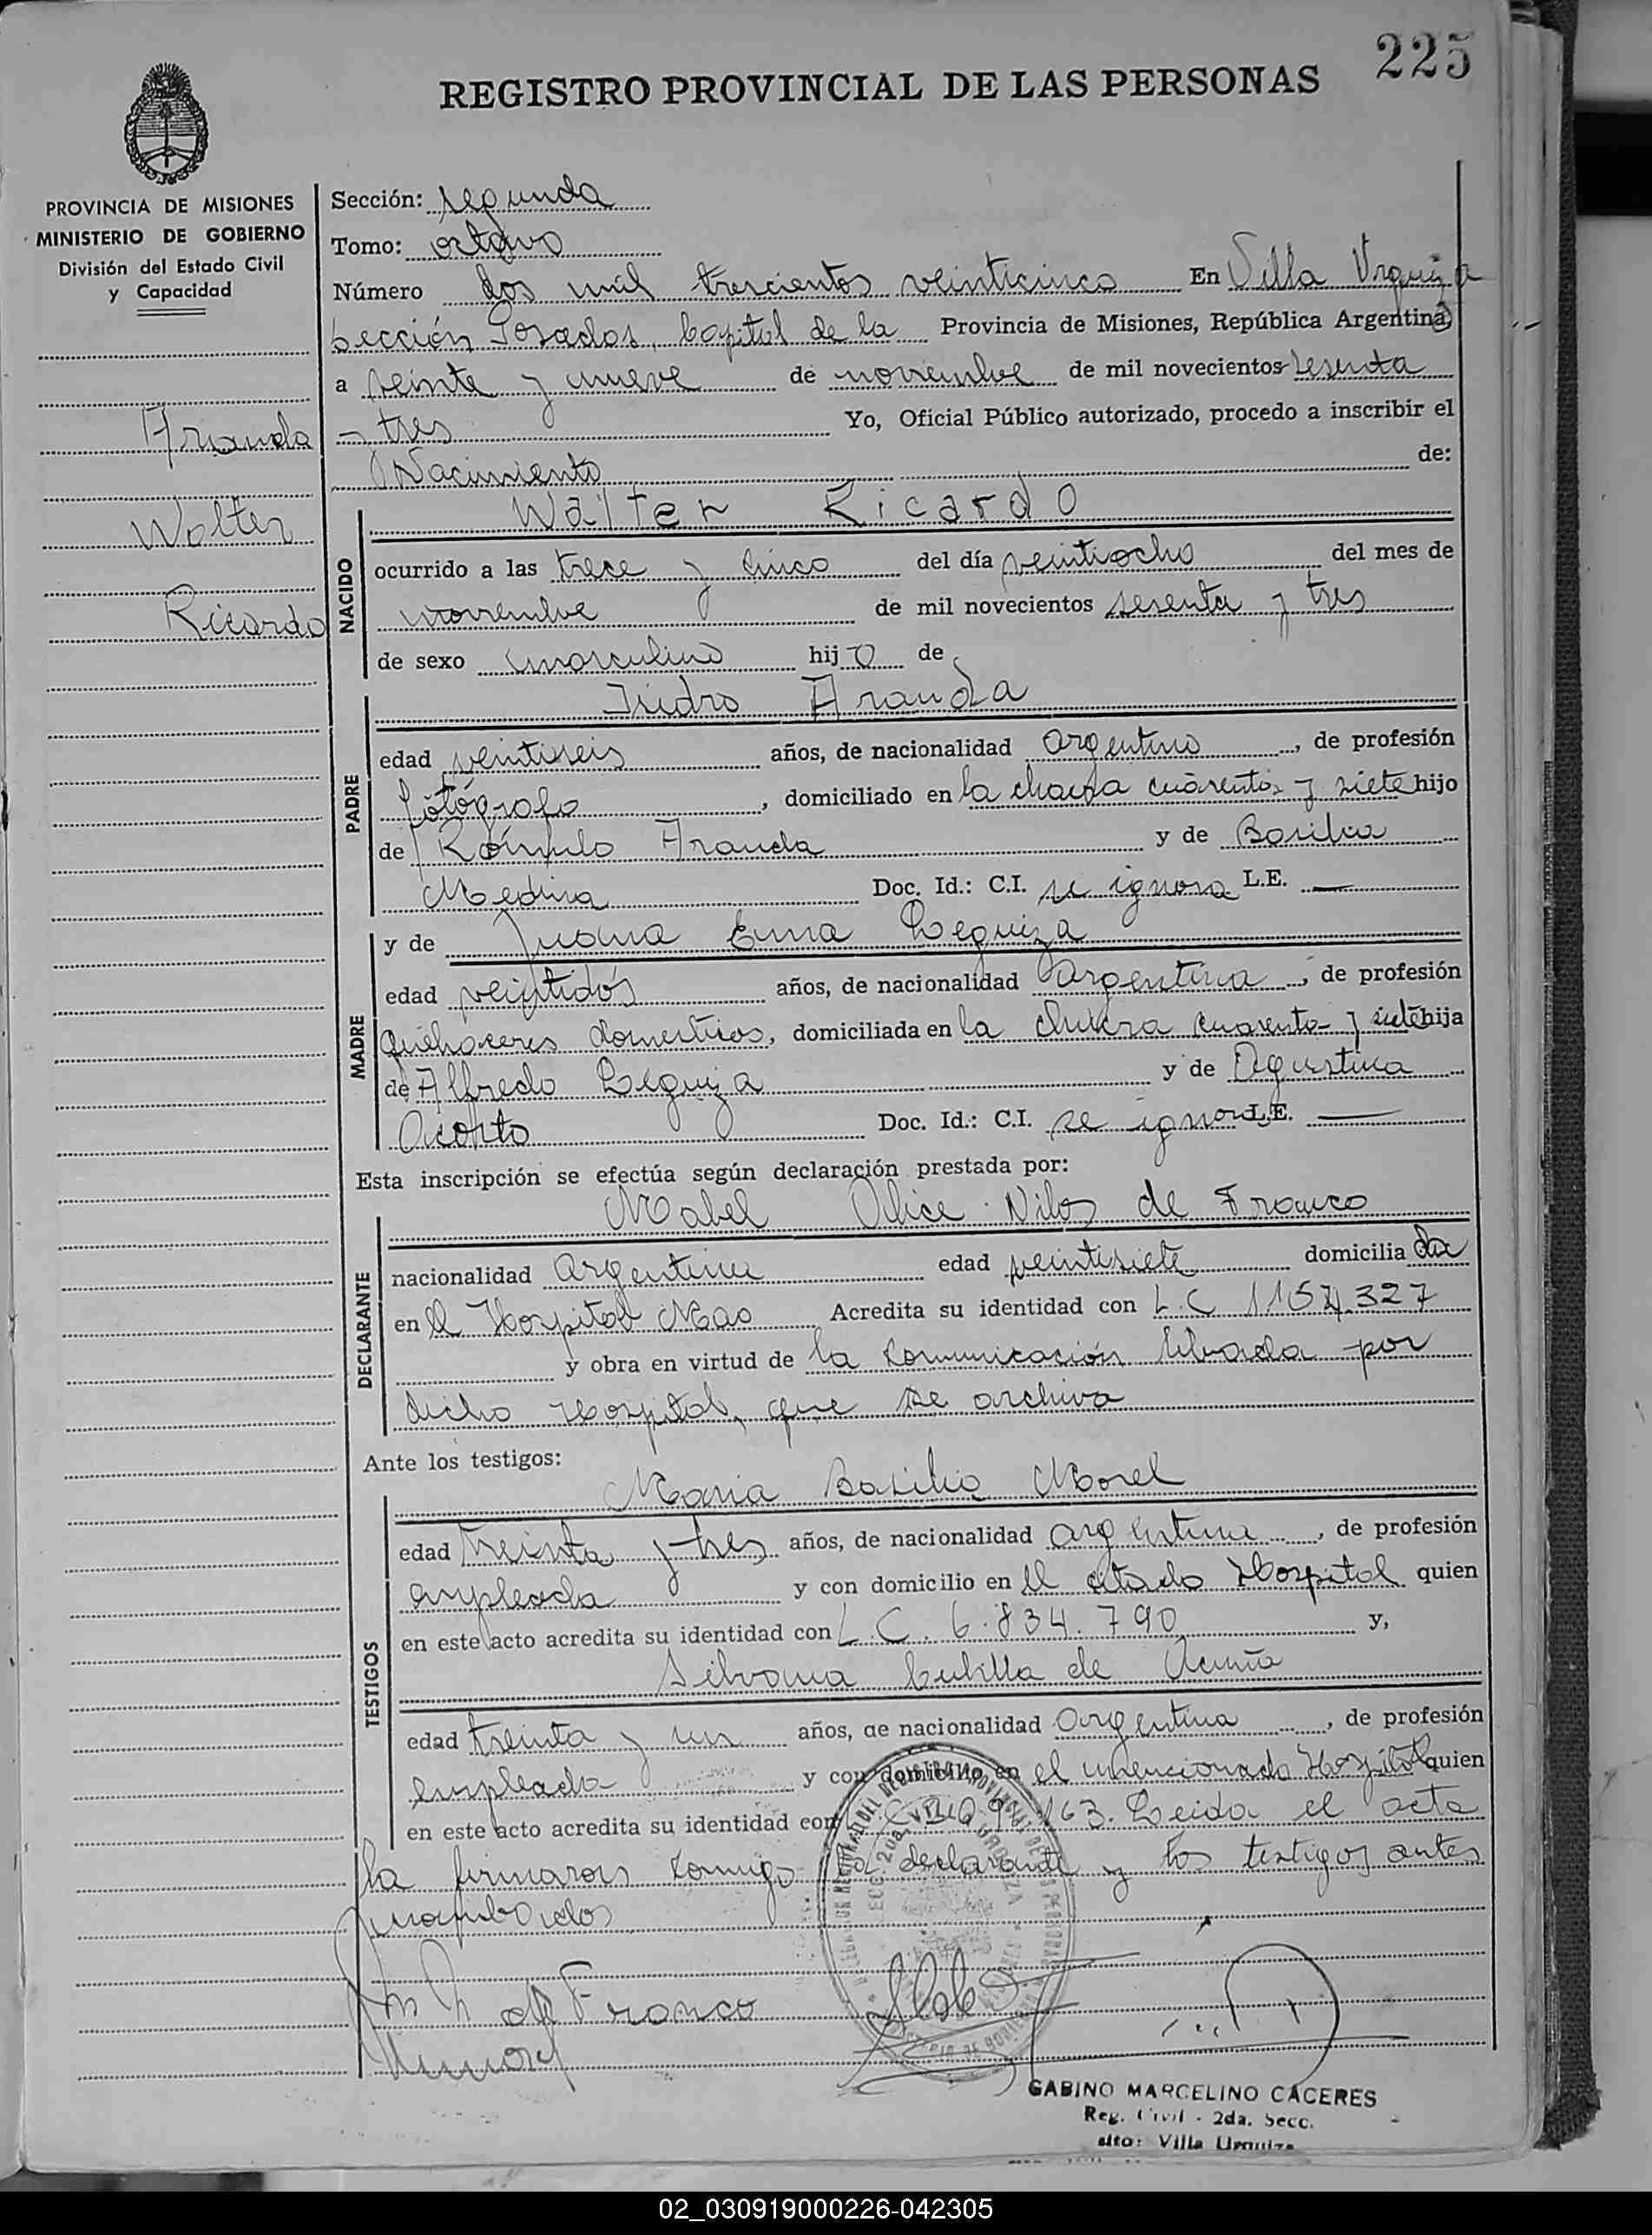 225
REGISTRO PROVINCIAL DE LAS PERSONAS
PROVINCIA DE MISIONES
MINISTERIO DE GOBIERNO
División del Estado Civil
y Capacidad
Aranda
Walter
Ricardo
Sección: segunda
Tomo: octavo
Número dos mil trescientos veinticinco En Villa Urquiza
Sección Posadas, Capital de la Provincia de Misiones, República Argentina,
a veinte y nueve de noviembre de mil novecientos sesenta
- tres Yo, Oficial Público autorizado, procedo a inscribir el
Nacimiento de:
NACIDO
Walter Ricardo
ocurrido a las trece y cinco del día veintiocho del mes de
noviembre de mil novecientos sesenta y tres
de sexo masculino hijo de
PADRE
Isidro Aranda
edad veintiseis años, de nacionalidad argentino, de profesión
fotógrafo, domiciliado en la chacra cuarenta y siete hijo
de Rómulo Aranda y de
Medina Doc. Id.: C.I. se ignora L.E. —
MADRE
y de Juana Ema Leguiza
edad veintidós años, de nacionalidad argentina, de profesión
quehaceres domesticos, domiciliada en la chacra cuarenta y siete hija
de Alfredo Leguiza y de Agustina
Doc. Id.: C.I. se ignora L.E. —
Esta inscripción se efectúa según declaración prestada por:
DECLARANTE
Mabel Alice de Franco
nacionalidad argentina edad veintisiete domicilia da
en el Hospital Acredita su identidad con L.C 1154.327
y obra en virtud de la comunicación librada por
dicho Hospital, que se archiva
Ante los testigos:
TESTIGOS
Maria Basilia Morel
edad treinta y tres años, de nacionalidad argentina, de profesión
empleada y con domicilio en el citado Hospital quien
en este acto acredita su identidad con L.C. 6.834.790 y,
Silvana de Acuña
edad treinta y un años, de nacionalidad argentina, de profesión
empleada y con domicilio en el mencionado Hospital quien
en este acto acredita su identidad con 163. Leida el acta
la firmaron conmigo la declarante y los testigos antes
nombrados
de Franco
GABINO MARCELINO CACERES
Reg. Civil - 2da. Secc.
Villa Urquiza
02_030919000226-042305